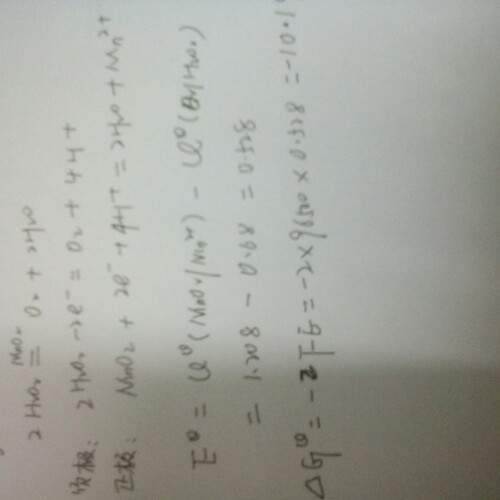 2H₂O₂ =(MnO₂)= O₂ + 2H₂O
负极: 2H₂O₂ - 2e⁻ = O₂ + 4H⁺
正极: MnO₂ + 2e⁻ + 4H⁺ = 2H₂O + Mn²⁺
E^θ = φ^θ(MnO₂/Mn²⁺) - φ^θ(O₂/H₂O₂)
= 1.208 - 0.68 = 0.528
ΔG^θ = -2FE = -2×96500×0.528 = -10.1